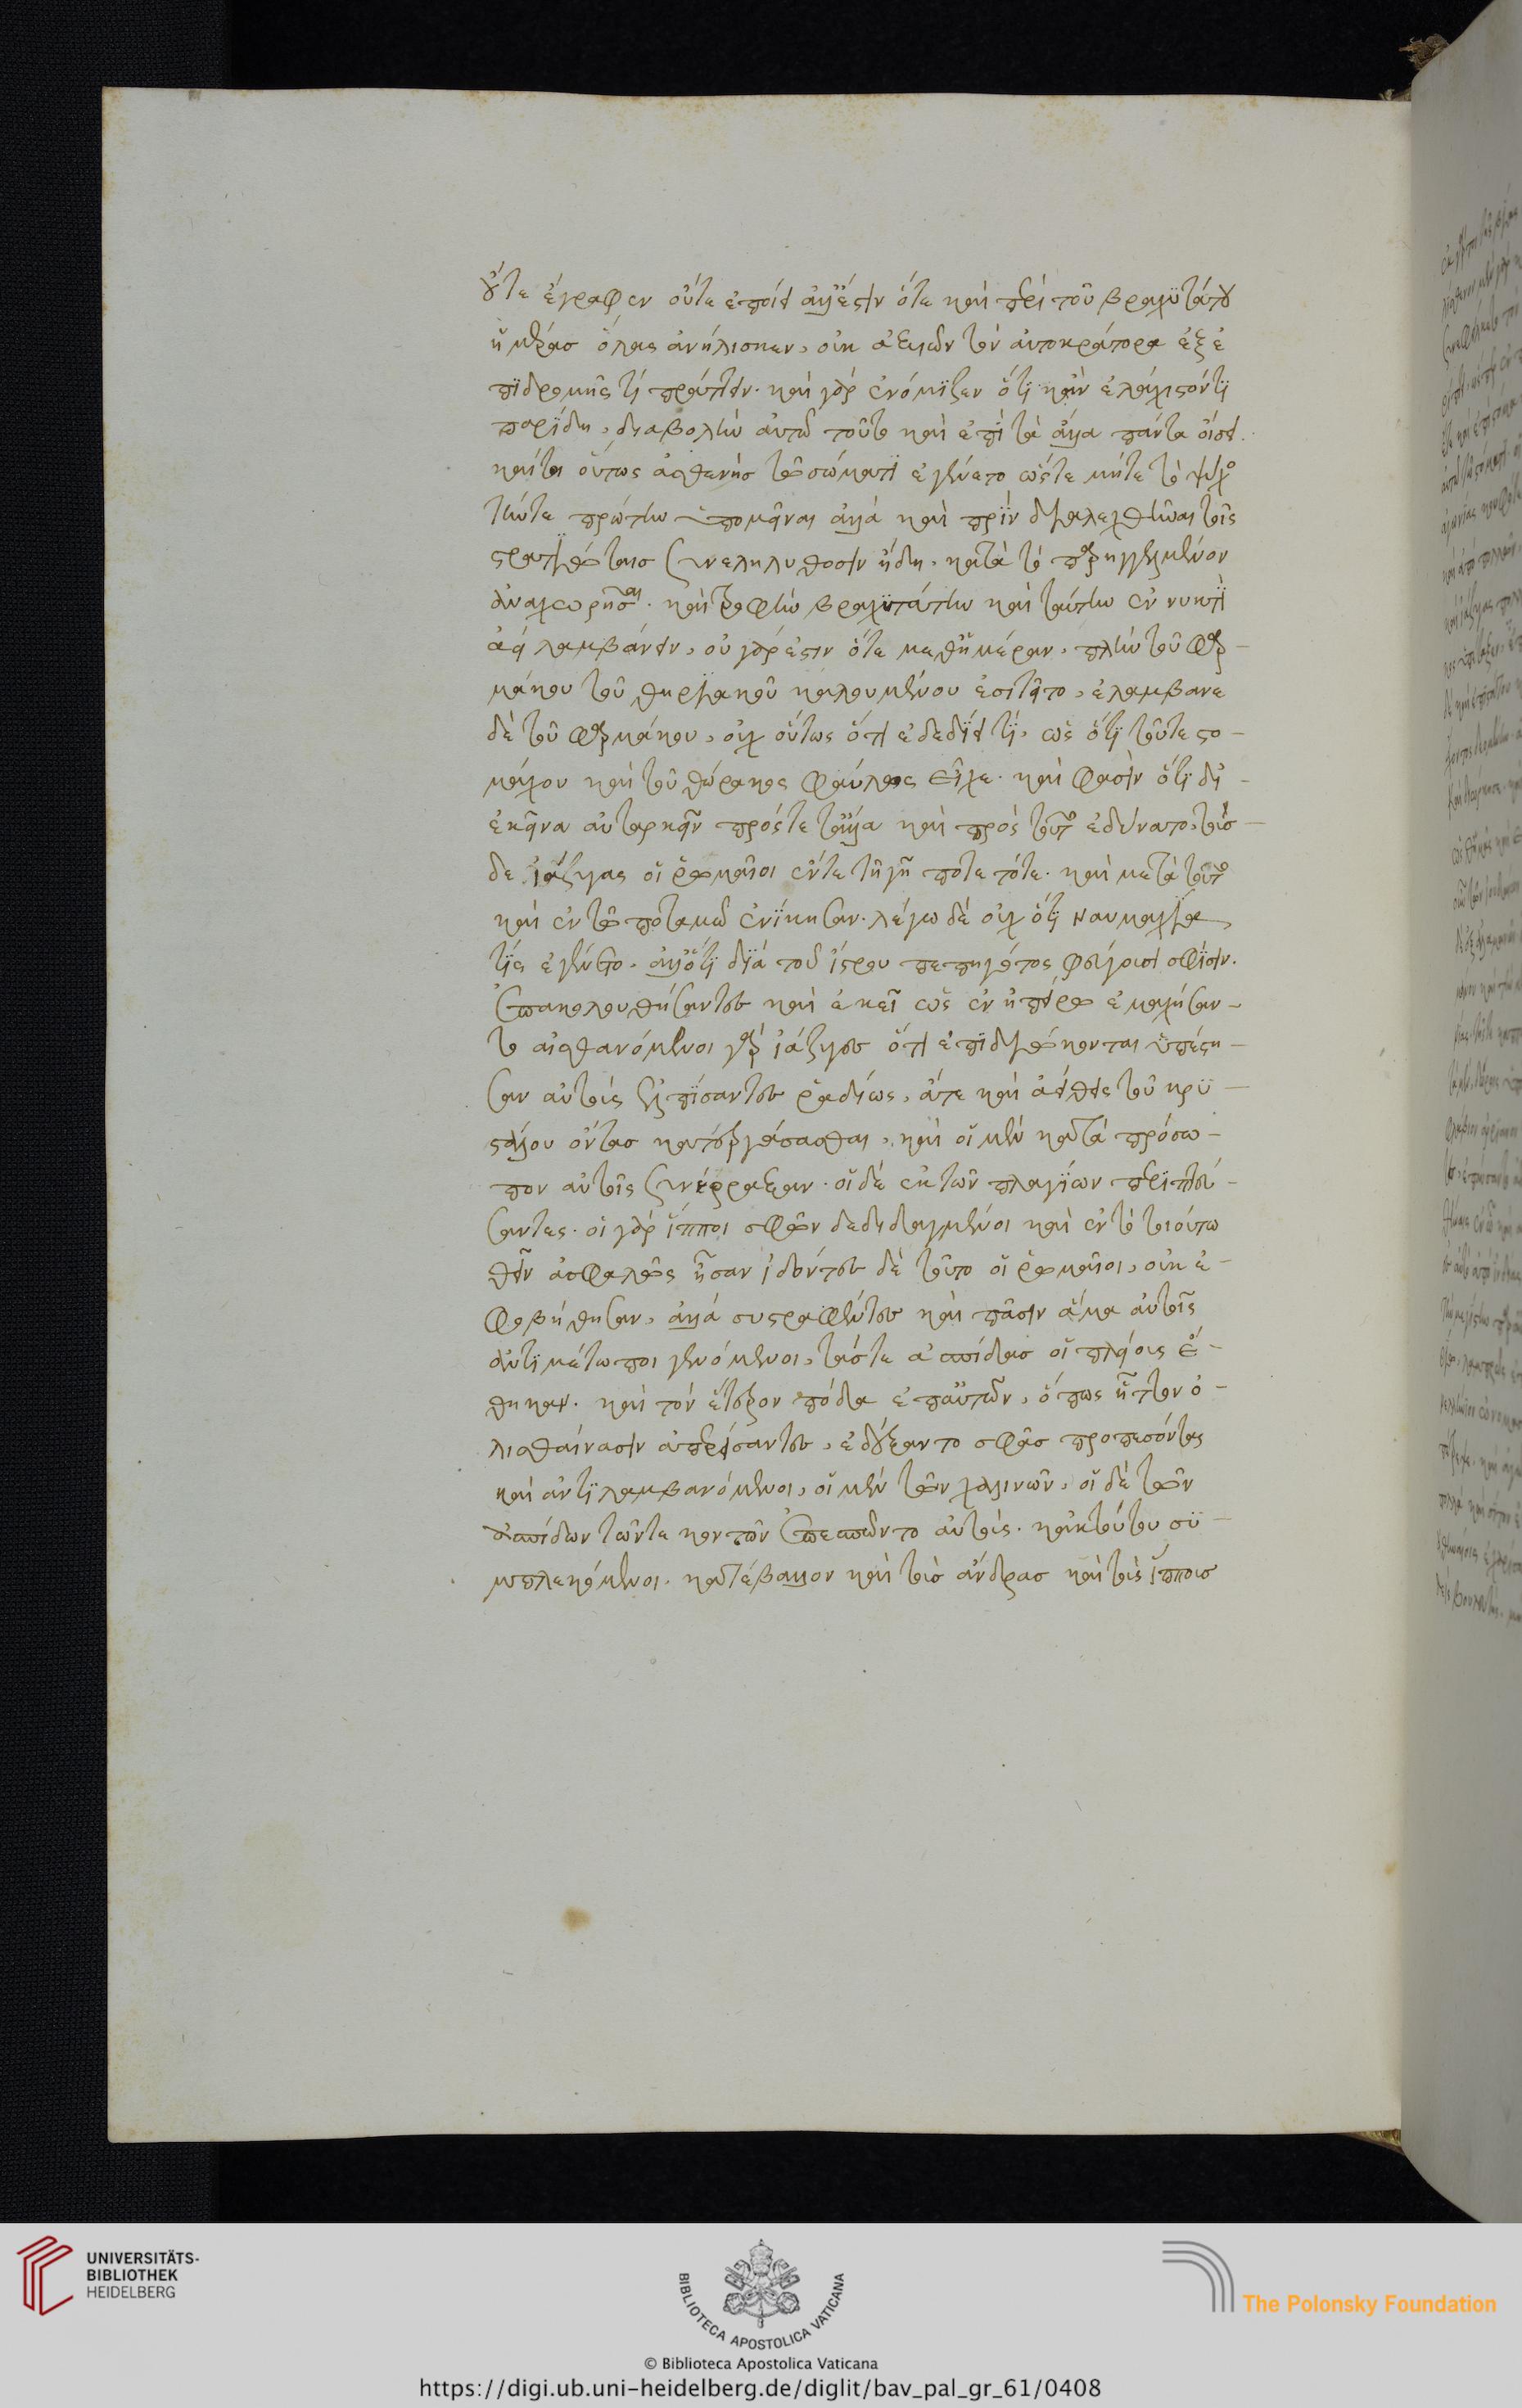 οὔτε ἔγραφεν οὔτε ἐποίει ἀλλ' ἔστιν ὅτε καὶ περὶ τοῦ βραχυτάτου
ἡμέρας ὅλας ἀνήλισκεν, οὐκ ἀξιῶν τὸν αὐτοκράτορα ἐξ ἐ
πιδρομῆς τὶ πράττειν. καὶ γὰρ ἐνόμιζεν ὅτι κἂν ἐλάχιστόν τι
παρίδη, διαβολὴν αὐτῶ τοῦτο καὶ ἐπὶ τὰ ἄλλα πάντα οἴσει.
καίτοι οὕτως ἀσθενὴς τῶ σώματι ἐγένετο ὥστε μήτε τὸ ψῦχο
τήντε πρώτην ὑπομεῖναι ἀλλὰ καὶ πρὶν διαλεχθῆναι τοῖς
στρατιώταις συνεληλυθόσιν ἤδη, κατὰ τὸ παρηγγελμένον
ἀναχωρῆσαι. καὶ τροφὴν βραχυτάτην καὶ ταύτην ἐν νυκτὶ
ἀεὶ λαμβάνειν, οὐ γὰρ ἔστιν ὅτε μεθ' ἡμέραν, πλὴν τοῦ φαρ-
μάκου τοῦ θηριακοῦ καλουμένου ἐσιτεῖτο, ἐλάμβανε
δὲ τοῦ φαρμάκου, οὐχ οὕτως ὅτι ἐδεδίει τι, ὡς ὅτι τοῦτε στο-
μάχου καὶ τοῦ θώρακος φαύλως εἶχε. καὶ φασὶν ὅτι δι' -
ἐκεῖνα αὐταρκεῖν πρόστε τἄλλα καὶ πρὸς τοῦτο ἐδύνατο, τοὺς -
δε ἰάζυγας οἱ ῥωμαῖοι ἔντε τῆ γῆ ποτε τότε. καὶ μετὰ τοῦτο
καὶ ἐν τῶ ποταμῶ ἐνίκησαν. λέγω δὲ οὐχ ὅτι ναυμαχία
τὶς ἐγένετο. ἀλλ' ὅτι διὰ τοῦ ἴστρου πεπηγότος φεύγουσι σφίσιν.
ἐπακολουθήσαντες καὶ ἐκεῖ ὡς ἐν ἠπείρω ἐμαχήσαν-
το αἰσθανόμενοι γὰρ ἰάζυγες ὅτι ἐπιδιώκονται ὑπέστη-
σαν αὐτοὺς ἐλπίσαντες ῥαδίως, ἅτε καὶ ἀήθεις τοῦ κρυ-
στάλλου ὄντας κατεργάσασθαι, καὶ οἱ μὲν κατὰ πρόσω-
πον αὐτοῖς συνέρραξαν. οἱ δὲ ἐκ τῶν πλαγίων περιιππεύ-
σαντες. οἱ γὰρ ἵπποι σφῶν δεδιδαγμένοι καὶ ἐν τῶ τοιούτω
θεῖν ἀσφαλῶς ἦσαν ἰδόντες δὲ τοῦτο οἱ ῥωμαῖοι, οὐκ ἐ-
φοβήθησαν, ἀλλὰ συστραφέντες καὶ πᾶσιν ἅμα αὐτοῖς
ἀντιμέτωποι γενόμενοι, τάστε ἀσπίδας οἱ πλείους ἔ-
θηκαν. καὶ τὸν ἕτερον πόδα ἐπ' αὐτῶν, ὅπως ἧττον ὀ-
λισθαίνωσιν ἀπερείσαντες, ἐδέξαντο σφᾶς προπεσόντας
καὶ ἀντιλαμβανόμενοι, οἱ μὲν τῶν χαλινῶν, οἱ δὲ τῶν
ἀσπίδων τῶντε κοντῶν ἐπεσπῶντο αὐτούς. κἀκ τούτου συ-
μπλεκόμενοι. κατέβαλλον καὶ τοὺς ἄνδρας καὶ τοὺς ἵππους
UNIVERSITÄTS-
BIBLIOTHEK
HEIDELBERG
BIBLIOTECA APOSTOLICA VATICANA
The Polonsky Foundation
© Biblioteca Apostolica Vaticana
https://digi.ub.uni-heidelberg.de/diglit/bav_pal_gr_61/0408